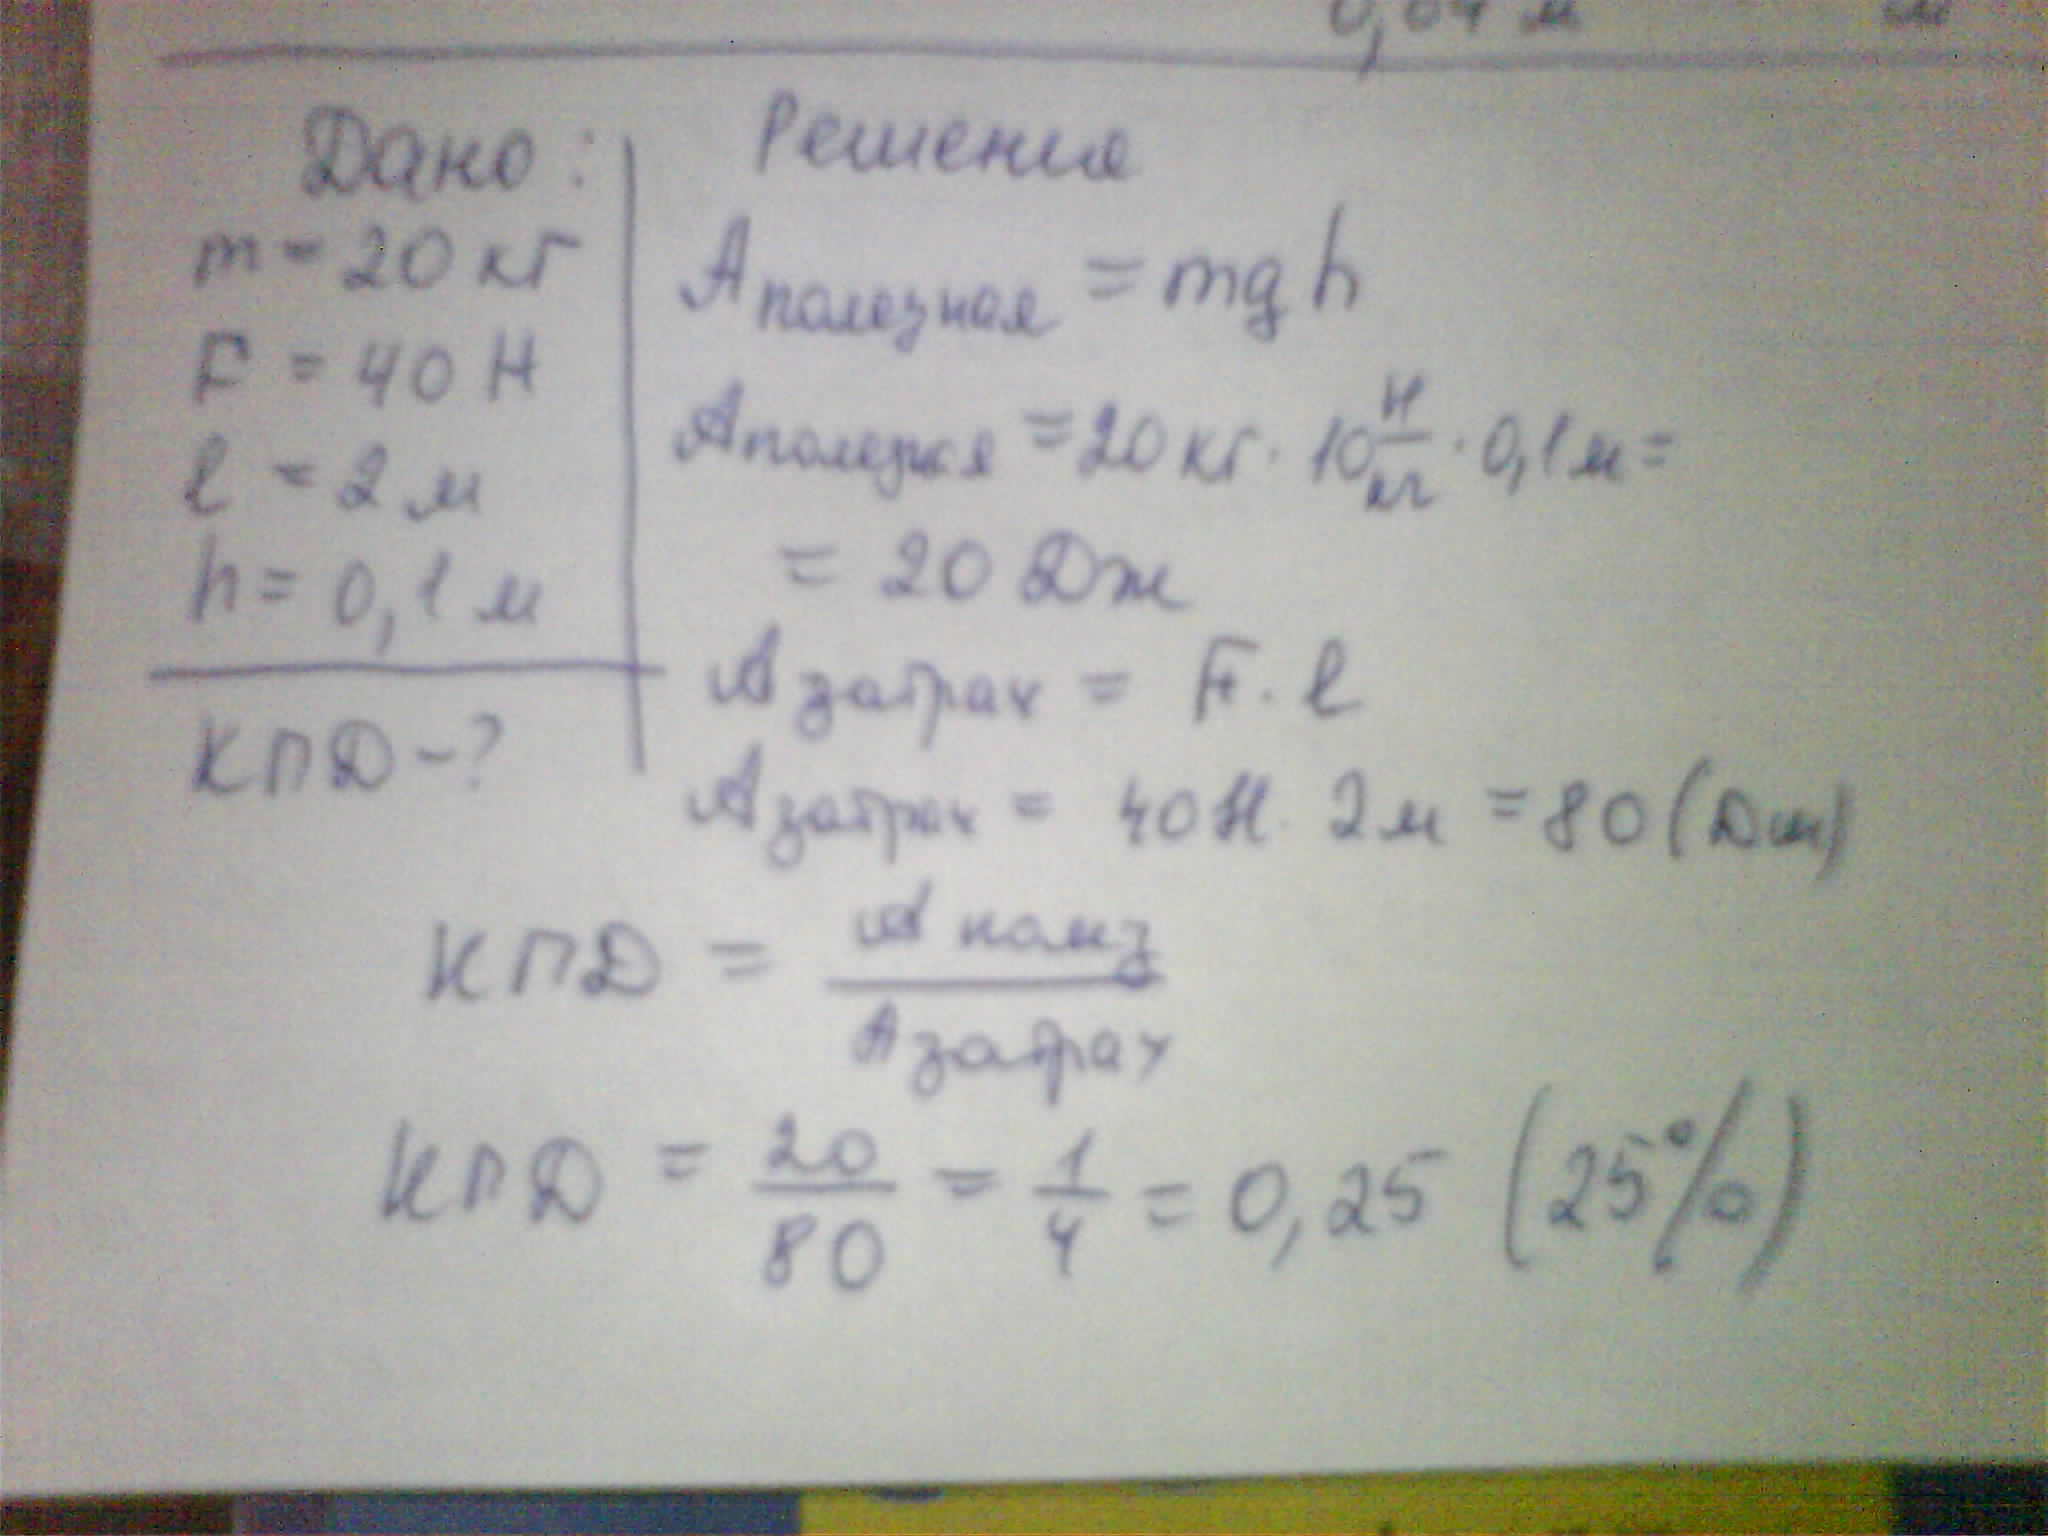 0,04 м м
Дано:
m = 20 кг
F = 40 Н
l = 2 м
h = 0,1 м
КПД - ?
Решения
A полезная = mgh
A полезная = 20 кг · 10 Н/кг · 0,1 м =
= 20 Дж
A затрач = F · l
A затрач = 40 Н · 2 м = 80 (Дж)
КПД = A полез / A затрач
КПД = 20/80 = 1/4 = 0,25 (25%)